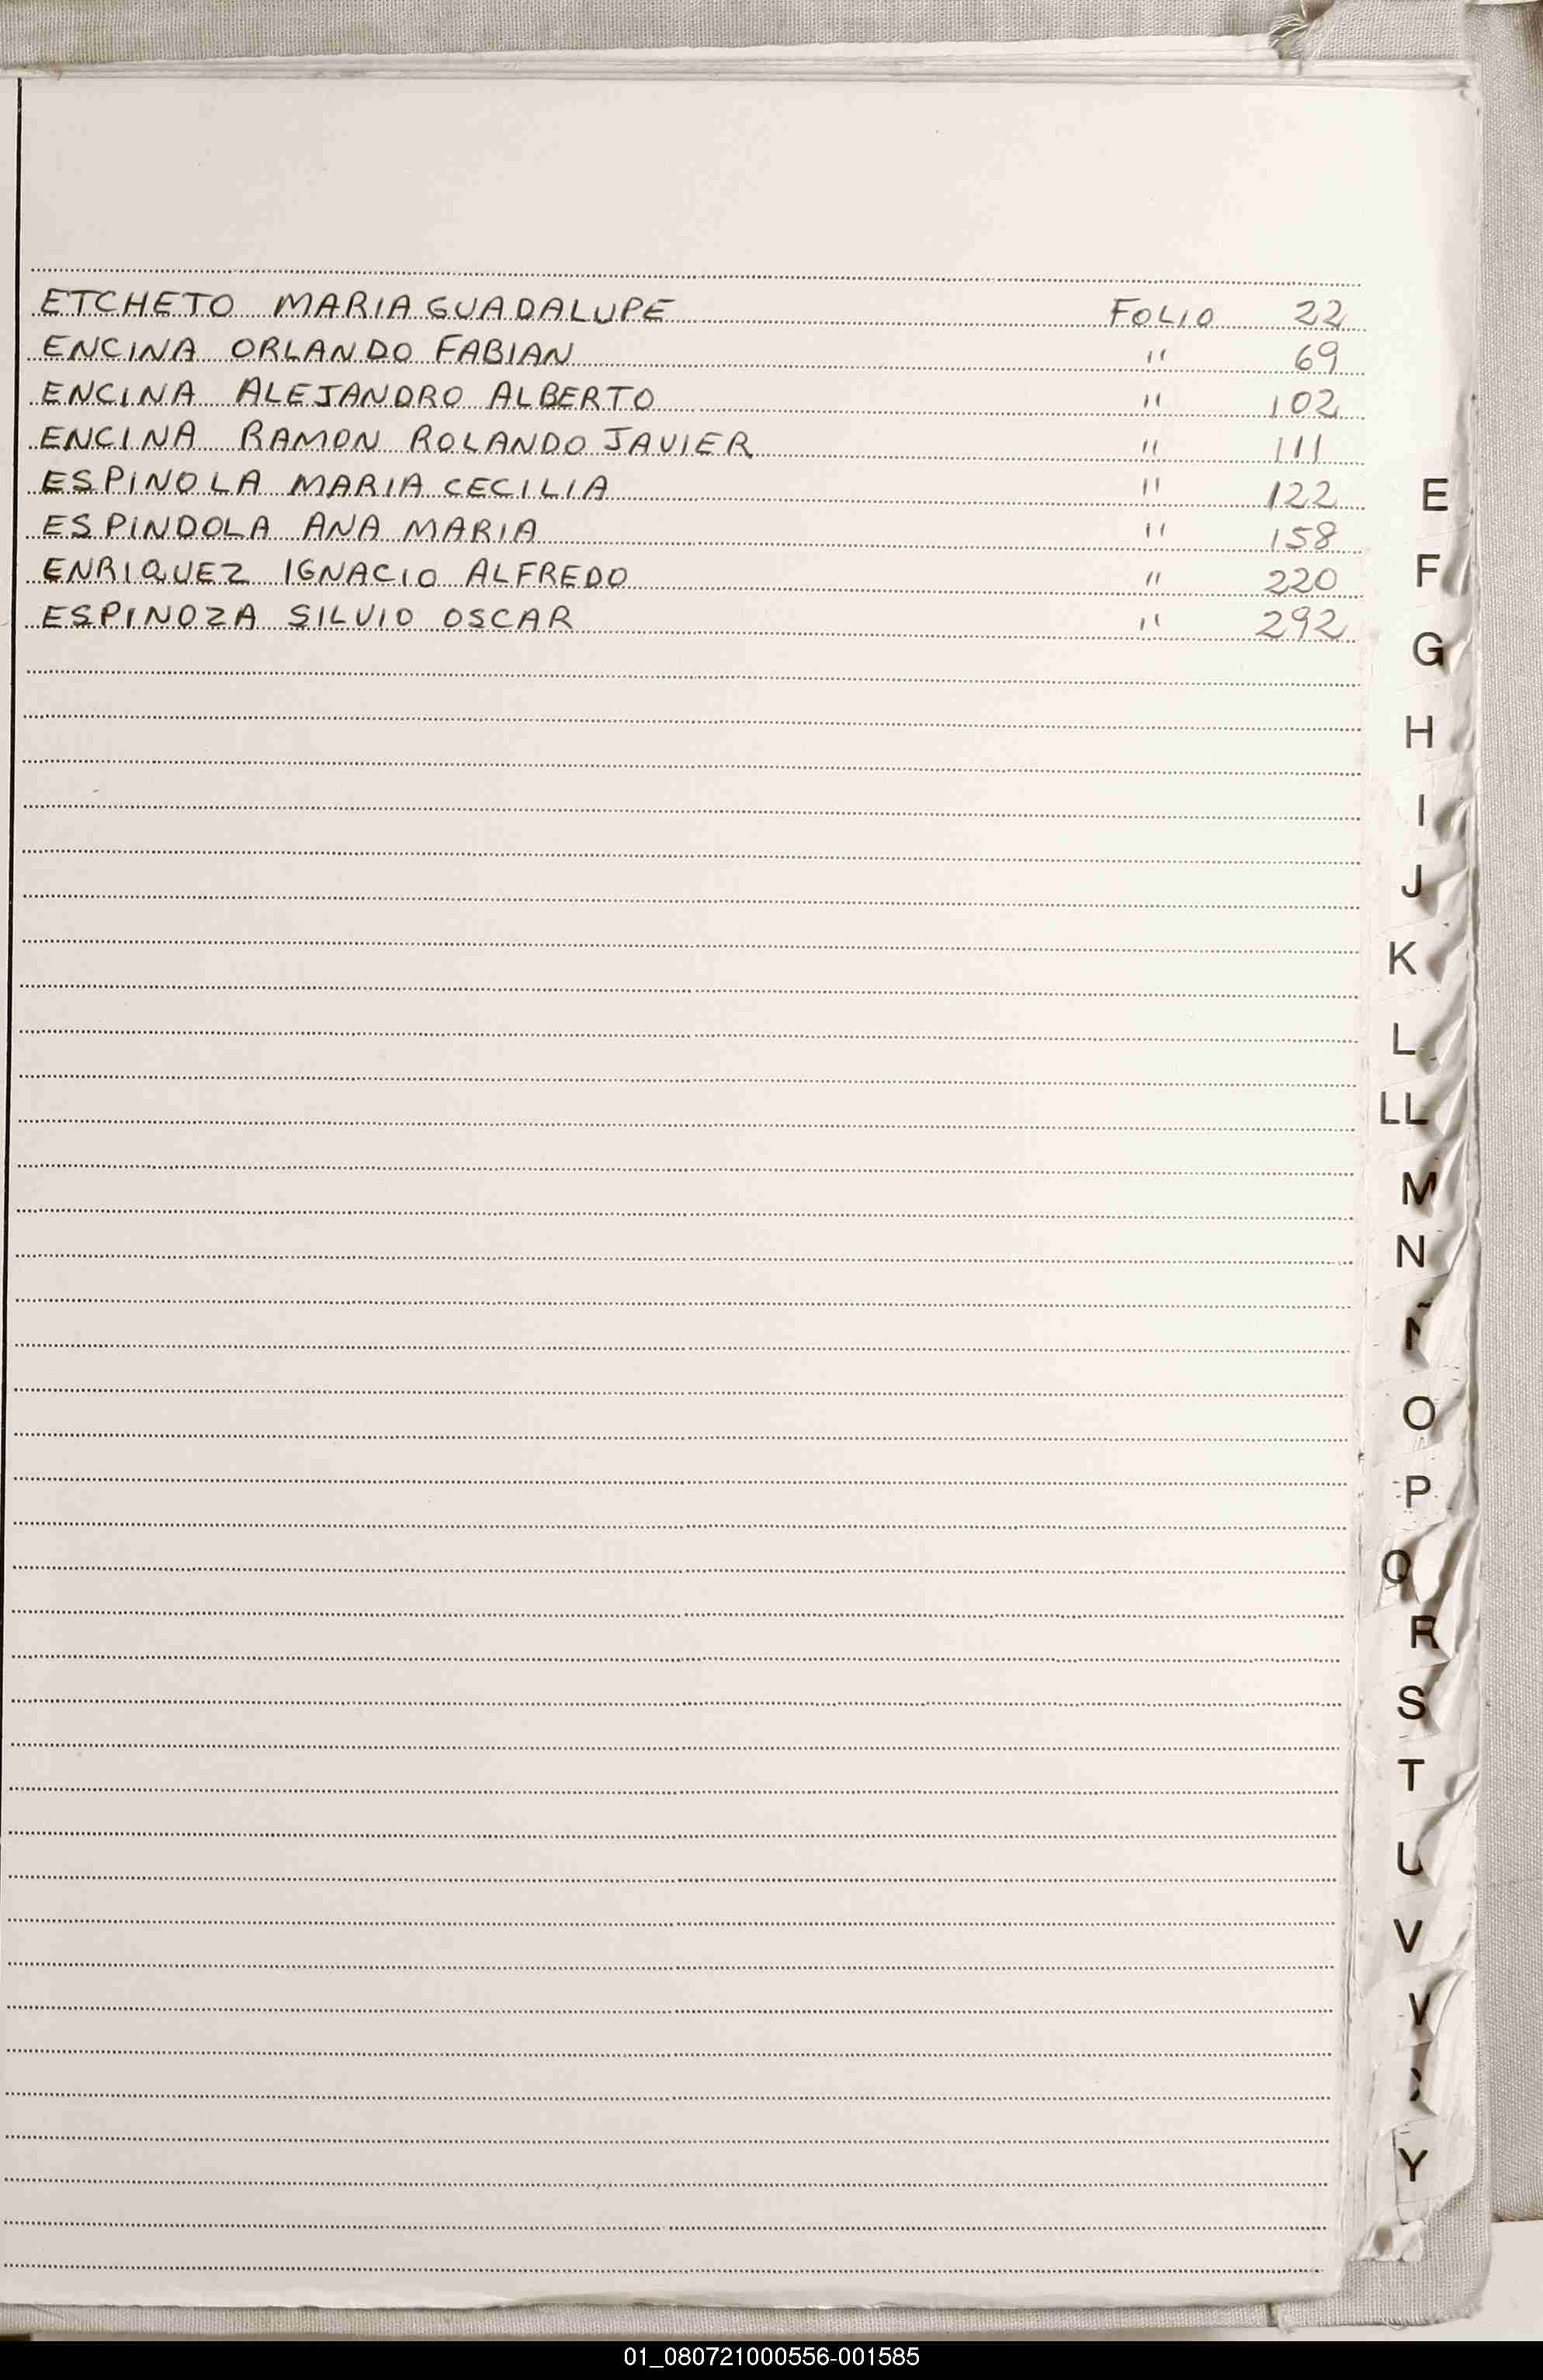 ETCHETO MARIA GUADALUPE FOLIO 22
ENCINA ORLANDO FABIAN " 69
ENCINA ALEJANDRO ALBERTO " 102
ENCINA RAMON ROLANDO JAVIER " 111
ESPINOLA MARIA CECILIA " 122
ESPINDOLA ANA MARIA " 158
ENRIQUEZ IGNACIO ALFREDO " 220
ESPINOZA SILVIO OSCAR " 292
E
F
G
H
I
J
K
L
LL
M
N
Ñ
O
P
Q
R
S
T
U
V
Y
01_080721000556-001585